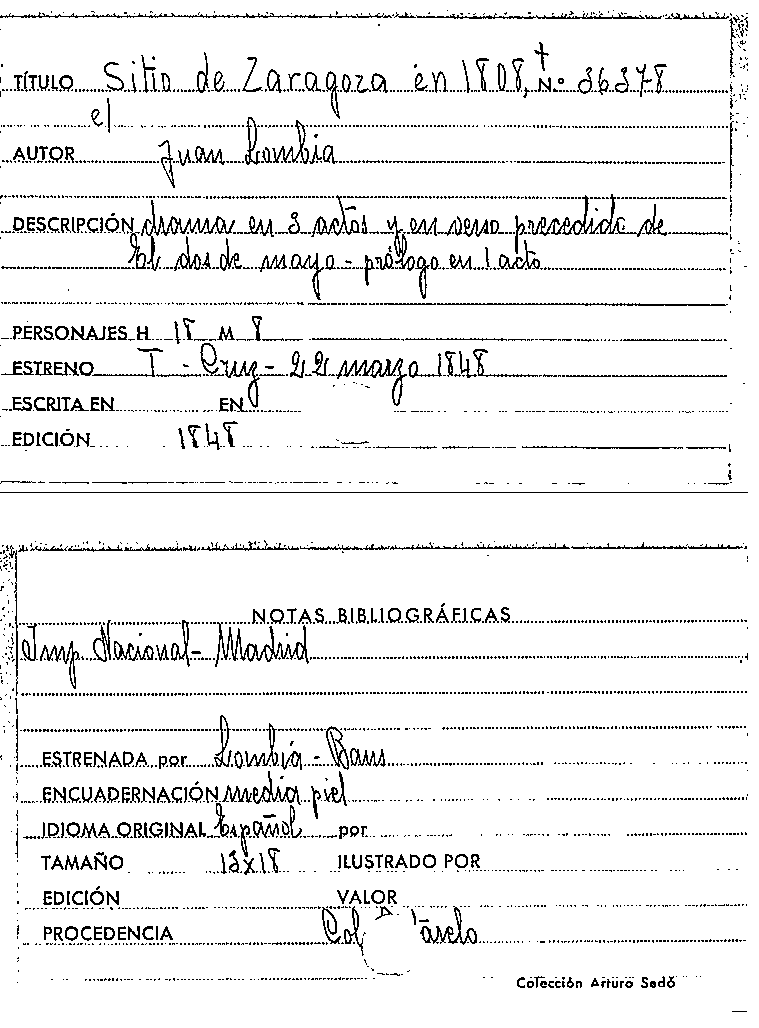 TÍTULO Sitio de Zaragoza en 1808, Nº 36378
el
AUTOR Juan Lombia
DESCRIPCIÓN drama en 3 actos y en verso precedido de
El dos de mayo - prólogo en 1 acto
PERSONAJES H 18 M 8
ESTRENO T - Cruz - 22 marzo 1848
ESCRITA EN EN
EDICIÓN 1848
NOTAS BIBLIOGRÁFICAS
Imp. Nacional - Madrid
ESTRENADA por Lombía - Baus
ENCUADERNACIÓN media piel
IDIOMA ORIGINAL Español por
TAMAÑO 13x18 ILUSTRADO POR
EDICIÓN VALOR
PROCEDENCIA Col
Colección Arturo Sedó